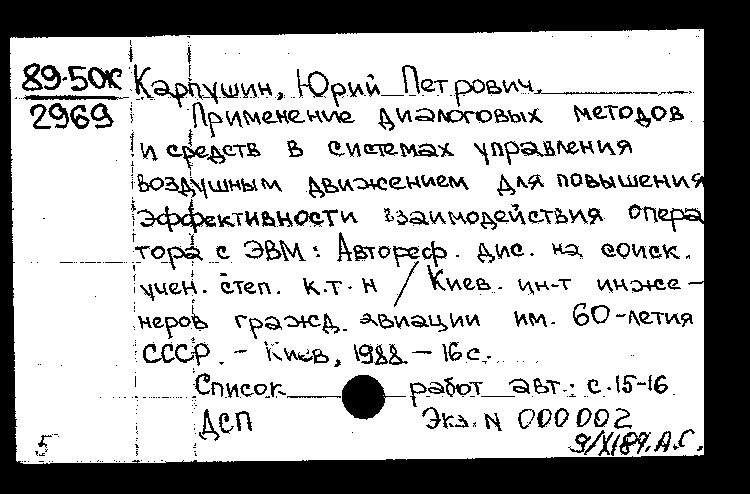 89-50К Карпушин, Юрий Петрович.
2969 Применение диалоговых методов
и средств в системах управления
воздушным движением для повышения
эффективности взаимодействия опера
тора с ЭВМ: Автореф. дис. на соиск.
учен. степ. к.т.н / Киев. ин-т инже-
неров гражд. авиации им. 60-летия
СССР. - Киев, 1988. - 16 с.
Список работ авт.: с. 15-16
ДСП Экз. N 000002
5 9/XI89. А.С.